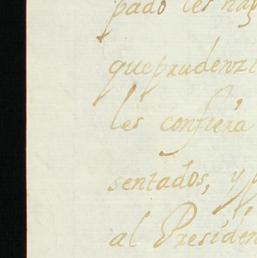 pado les hag
queprudenzi
les confiera
sentados, y p
al Presiden